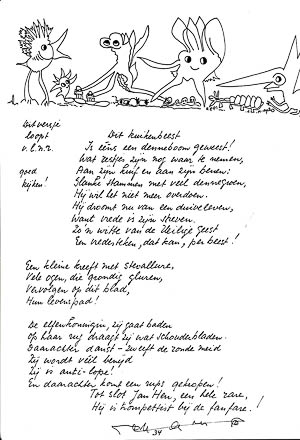 Dit versje
loopt
v.l.n.r.
goed
kijken!
Dit kuikenbeest
Is ééns een denneboom geweest!
Wat restjes zijn nog waar te nemen,
Aan zijn kuif en aan zijn benen:
Slanke stammen met veel dennegroen,
Hij wil het niet meer overdoen.
Hij droomt nu van een duiveleven,
Want vrede is zijn streven.
Zo'n witte van de Heilige Geest
Een vredesteken, dat kan, per beest!
Een kleine kreeft met stevallure,
Vele ogen, die grondig gluren,
Vervolgen op dit blad,
Hun levenspad!
De elfenkoningin, zij gaat baden
op haar rug draagt zij wat schouderbladen.
Daarachter danst - zweeft de ronde meid
Zij wordt veel benijd
Zij is anti-lope!
En daarachter komt een rups gekropen!
Tot slot Jan Hen, een hele rare,
Hij is trompettist bij de fanfare!